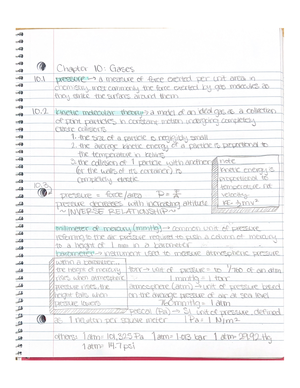 Chapter 10: Gases
10.1 pressure → a measure of force exerted per unit area; in
chemistry, most commonly, the force exerted by gas molecules as
they strike the surfaces around them
10.2 kinetic molecular theory → a model of an ideal gas as a collection
of point particles in constant motion undergoing completely
elastic collisions
1. the size of a particle is negligibly small
2. the average kinetic energy of a particle is proportional to
the temperature in kelvins
3. the collision of 1 particle with another
(or the walls of its container) is
completely elastic
Note:
kinetic energy is
proportional to
temperature, not
velocity.
KE = ½mv²
10.3
pressure = force/area P = F/A
pressure decreases with increasing altitude
~INVERSE RELATIONSHIP~
millimeter of mercury (mmHg) → common unit of pressure
referring to the air pressure required to push a column of mercury
to a height of 1 mm in a barometer
barometer → instrument used to measure atmospheric pressure
within a barometer...
the height of mercury
rises when atmospheric
pressure rises; the
height falls when
pressure lowers
torr → unit of pressure = to 1/760 of an atm
1 mmHg = 1 torr
atmosphere (atm) → unit of pressure based
on the average pressure of air at sea level
760 mmHg = 1 atm
pascal (Pa) → SI unit of pressure, defined
as 1 newton per square meter 1 Pa = 1 N/m²
others: 1 atm = 101,325 Pa 1 atm = 1.013 bar 1 atm = 29.92 Hg
1 atm = 14.7 psi